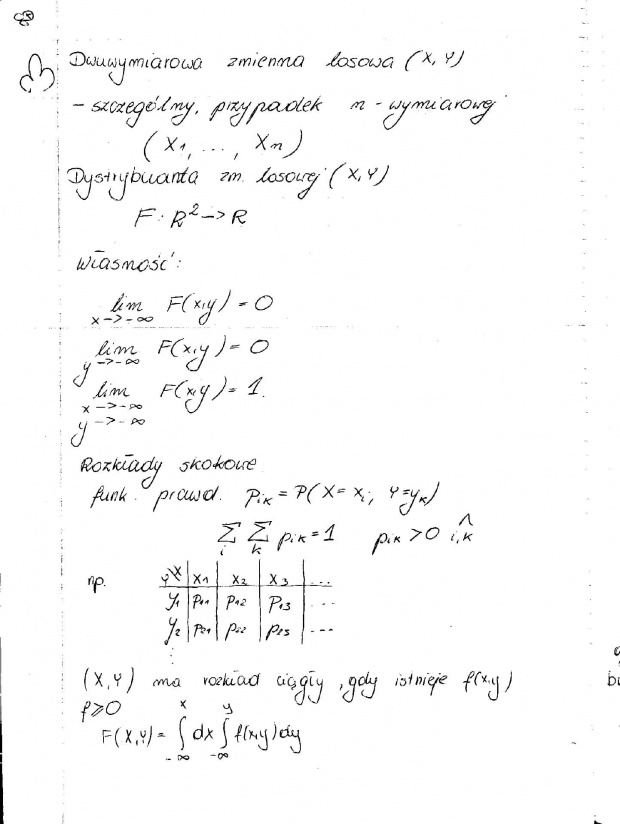 Dwuwymiarowa zmienna losowa (X, Y)
- szczególny, przypadek n - wymiarowej
(X1, ..., Xn)
Dystrybuanta zm. losowej (X, Y)
F: R² -> R
Własność:
lim F(x,y) = 0
x -> -∞
lim F(x,y) = 0
y -> -∞
lim F(x,y) = 1.
x -> -∞
y -> -∞
Rozkłady skokowe
funk. prawd. pik = P(X = xi, Y = yk)
∑i ∑k pik = 1 pik > 0 ⋀ i,k
np. Y\X | x1 | x2 | x3 | ...
y1 | p11 | p12 | p13 | ...
y2 | p21 | p22 | p23 | ...
⋮
(X, Y) ma rozkład ciągły, gdy istnieje f(x,y)
f ≥ 0
F(X,Y) = ∫_{-∞}^{x} dx ∫_{-∞}^{y} f(x,y) dy